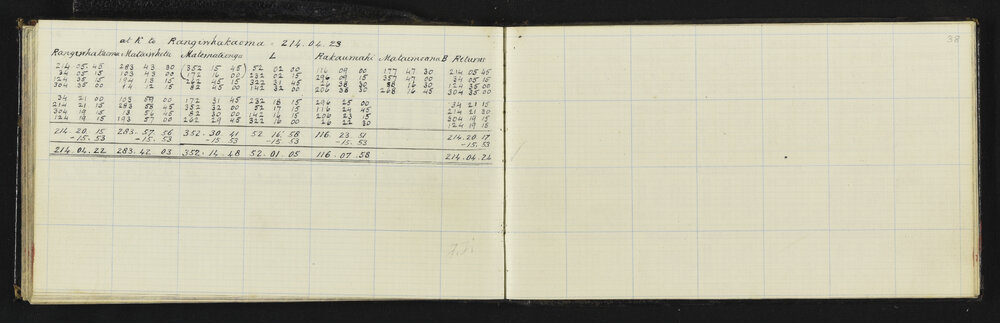 at K to Ranginhakaoma . 214.04.23
38
Ranginhakaoma Matainhetu Matematenga L Rakaumaki Mataimoana B Returns
214 05 45 283 43 30 (352 15 45) 52 02 00 116 09 00 177 47 30 214 05 45
34 05 15 103 43 00 (172 16 00) 232 02 15 296 09 15 357 47 00 34 05 15
124 35 15 194 12 15 262 45 15 322 31 45 26 38 30 88 16 30 124 35 00
304 35 00 14 12 15 82 45 00 142 32 00 206 38 30 268 16 45 304 35 00
34 21 00 103 59 00 172 31 45 232 18 15 296 25 00 34 21 15
214 21 15 283 58 45 352 32 00 52 17 15 116 24 45 214 21 30
304 19 15 13 56 45 82 30 00 142 16 15 206 23 15 304 19 15
124 19 15 193 57 00 262 29 45 322 16 00 26 22 30 124 19 15
214. 20. 15 283. 57. 56 352. 30. 41 52 16. 58 116. 23. 51 214. 20. 17
-15. 53 -15. 53 -15. 53 -15. 53 -15. 53 -15. 53
214. 04. 22 283. 42 03 352. 14. 48 52. 01. 05 116. 07. 58 214. 04. 24